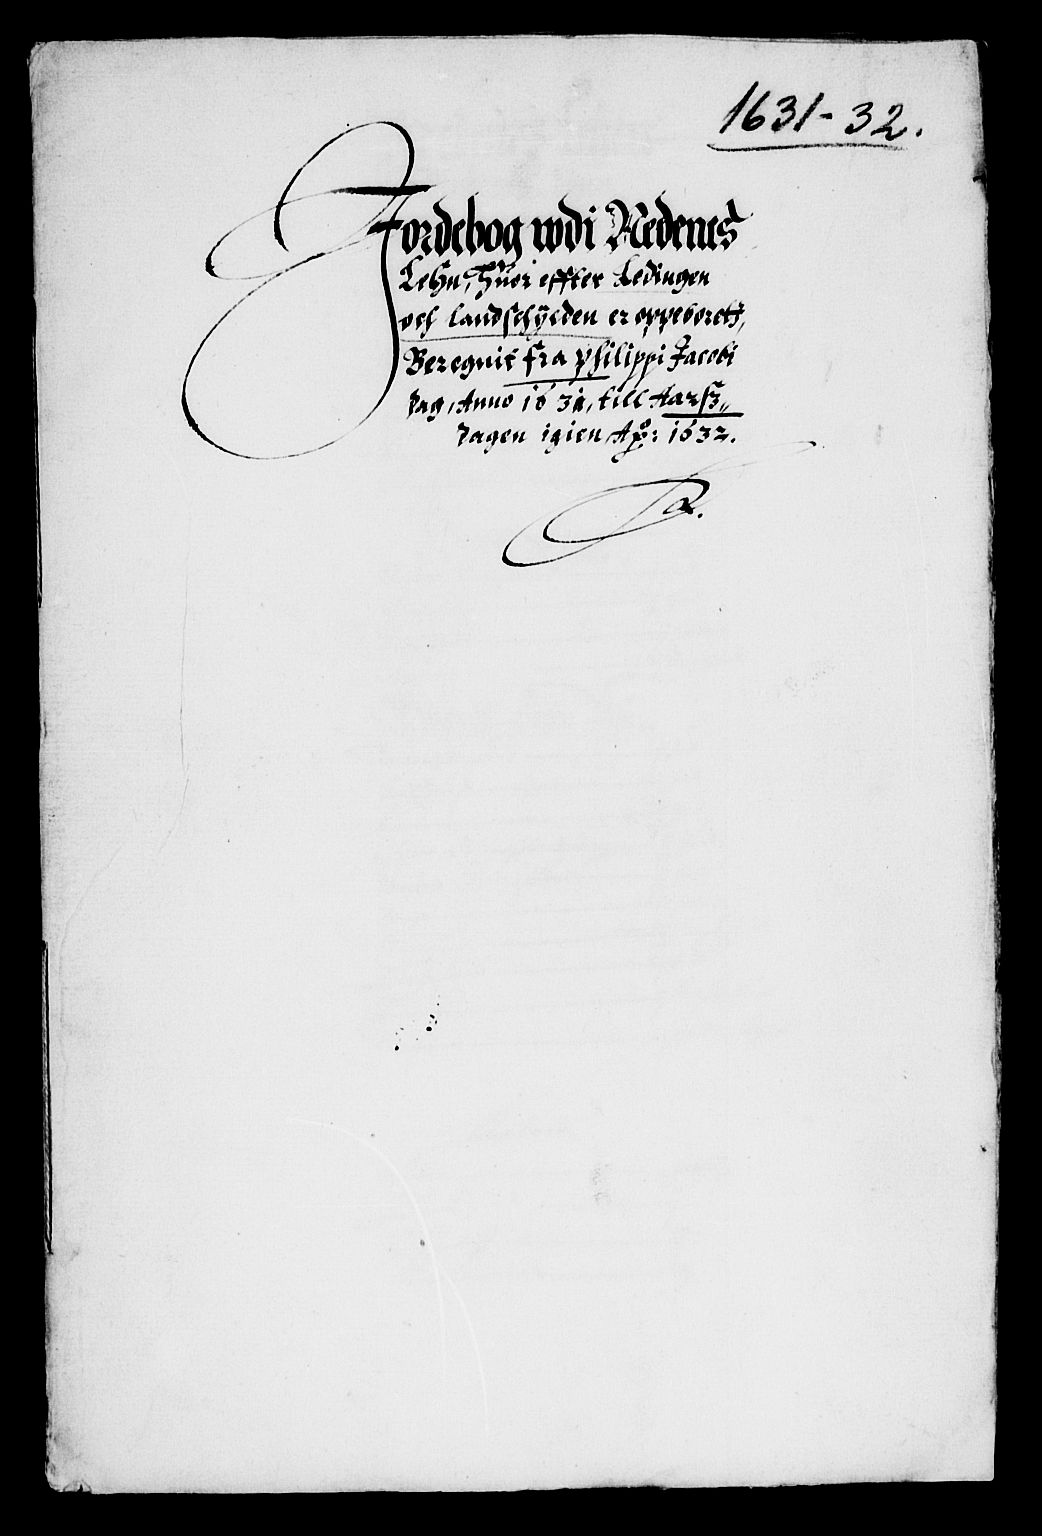 1631-32.
Jordebog wdi Nedenes
Lehn, Huor effter Ledingen
och Landschÿlden er oppeboret,
Beregnit fra Philippi Jacobi
dag, Anno 1631, till Aarß„
dagen igien Aō: 1632.